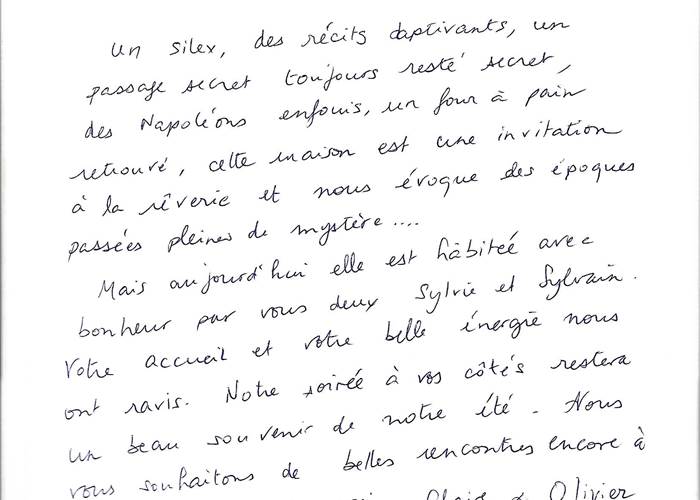 Un silex, des récits captivants, un
passage secret toujours resté secret,
des Napoléons enfouis, un four à pain
retrouvé, cette maison est une invitation
à la rêverie et nous évoque des époques
passées pleines de mystère....
Mais aujourd'hui elle est hàbiteé avec
bonheur par vous deux Sylvie et Sylvain.
Votre accueil et votre belle énergie nous
ont ravis. Notre soirée à vos côtés restera
un beau souvenir de notre été. Nous
vous souhaitons de belles rencontres encore à
Olivier